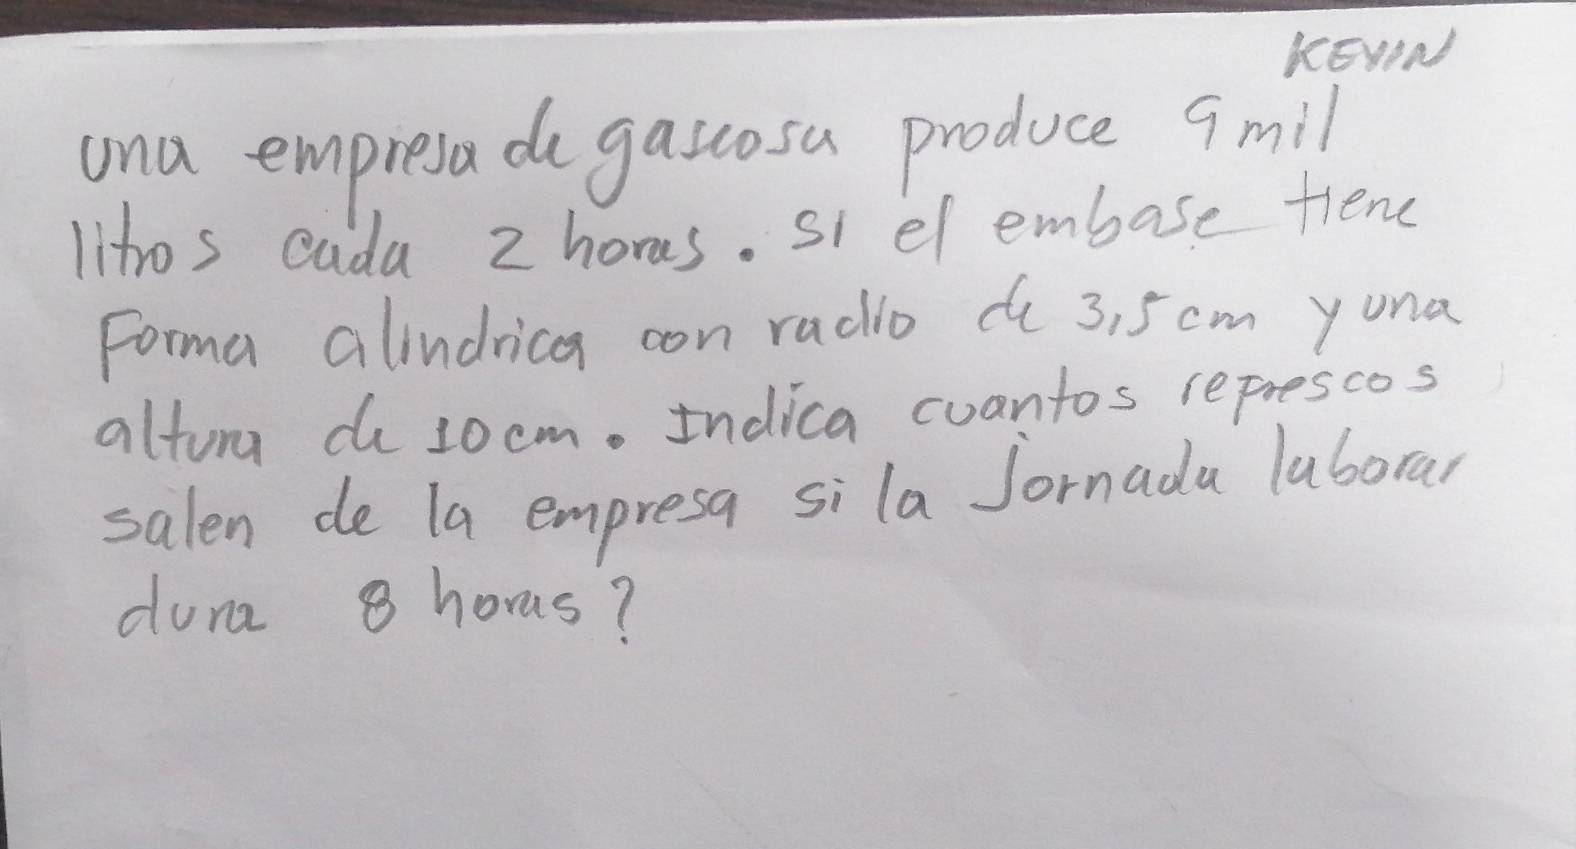 KEVIN
una empresa de gaseosa produce 9 mil
litros cada 2 horas. si el embase tiene
Forma cilindrica con radio de 3,5 cm y una
altura de 10 cm. Indica cuantos represcos
salen de la empresa si la Jornada laborar
dura 8 horas?